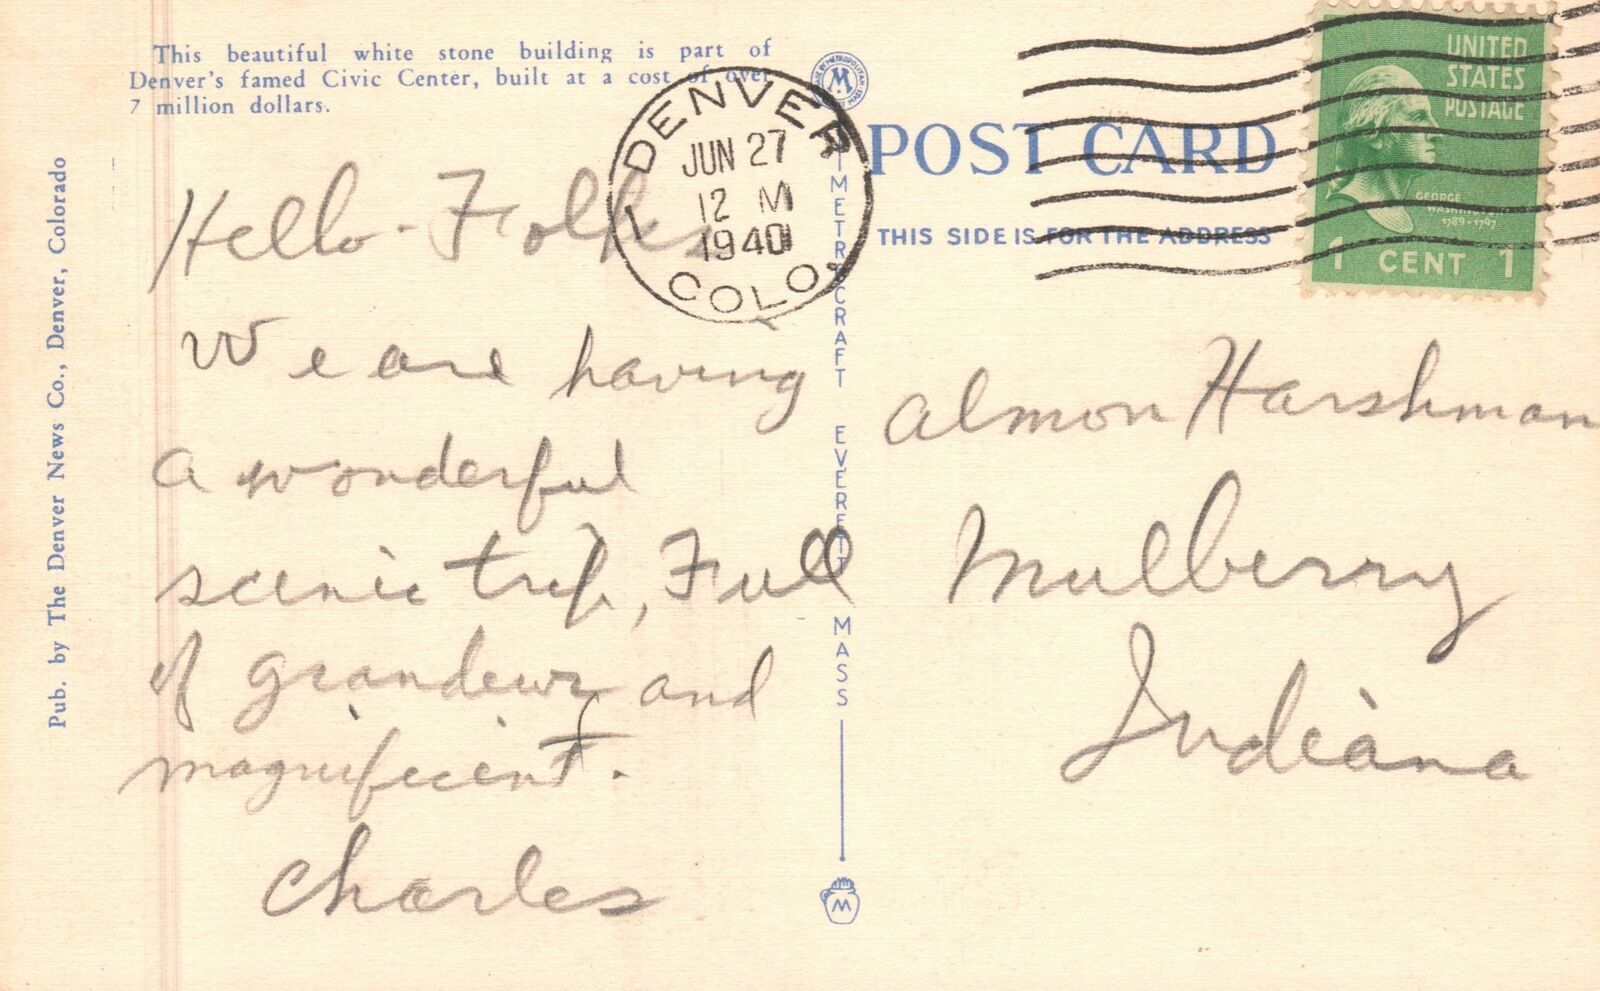 This beautiful white stone building is part of
Denver's famed Civic Center, built at a cost of over
7 million dollars.
Pub. by The Denver News Co., Denver, Colorado
Hello-Folks
We are having
a wonderful
scenic trip, Full
of grandeur and
magnificent.
Charles
DENVER
JUN 27
12 M
1940
COLO.
1
MADE BY METROPOLITAN
M
METROCRAFT EVERETT MASS
M
POST CARD
THIS SIDE IS FOR THE ADDRESS
UNITED
STATES
POSTAGE
GEORGE
WASHINGTON
1789-1797
1 CENT 1
Almon Harshman
Mulberry
Indiana